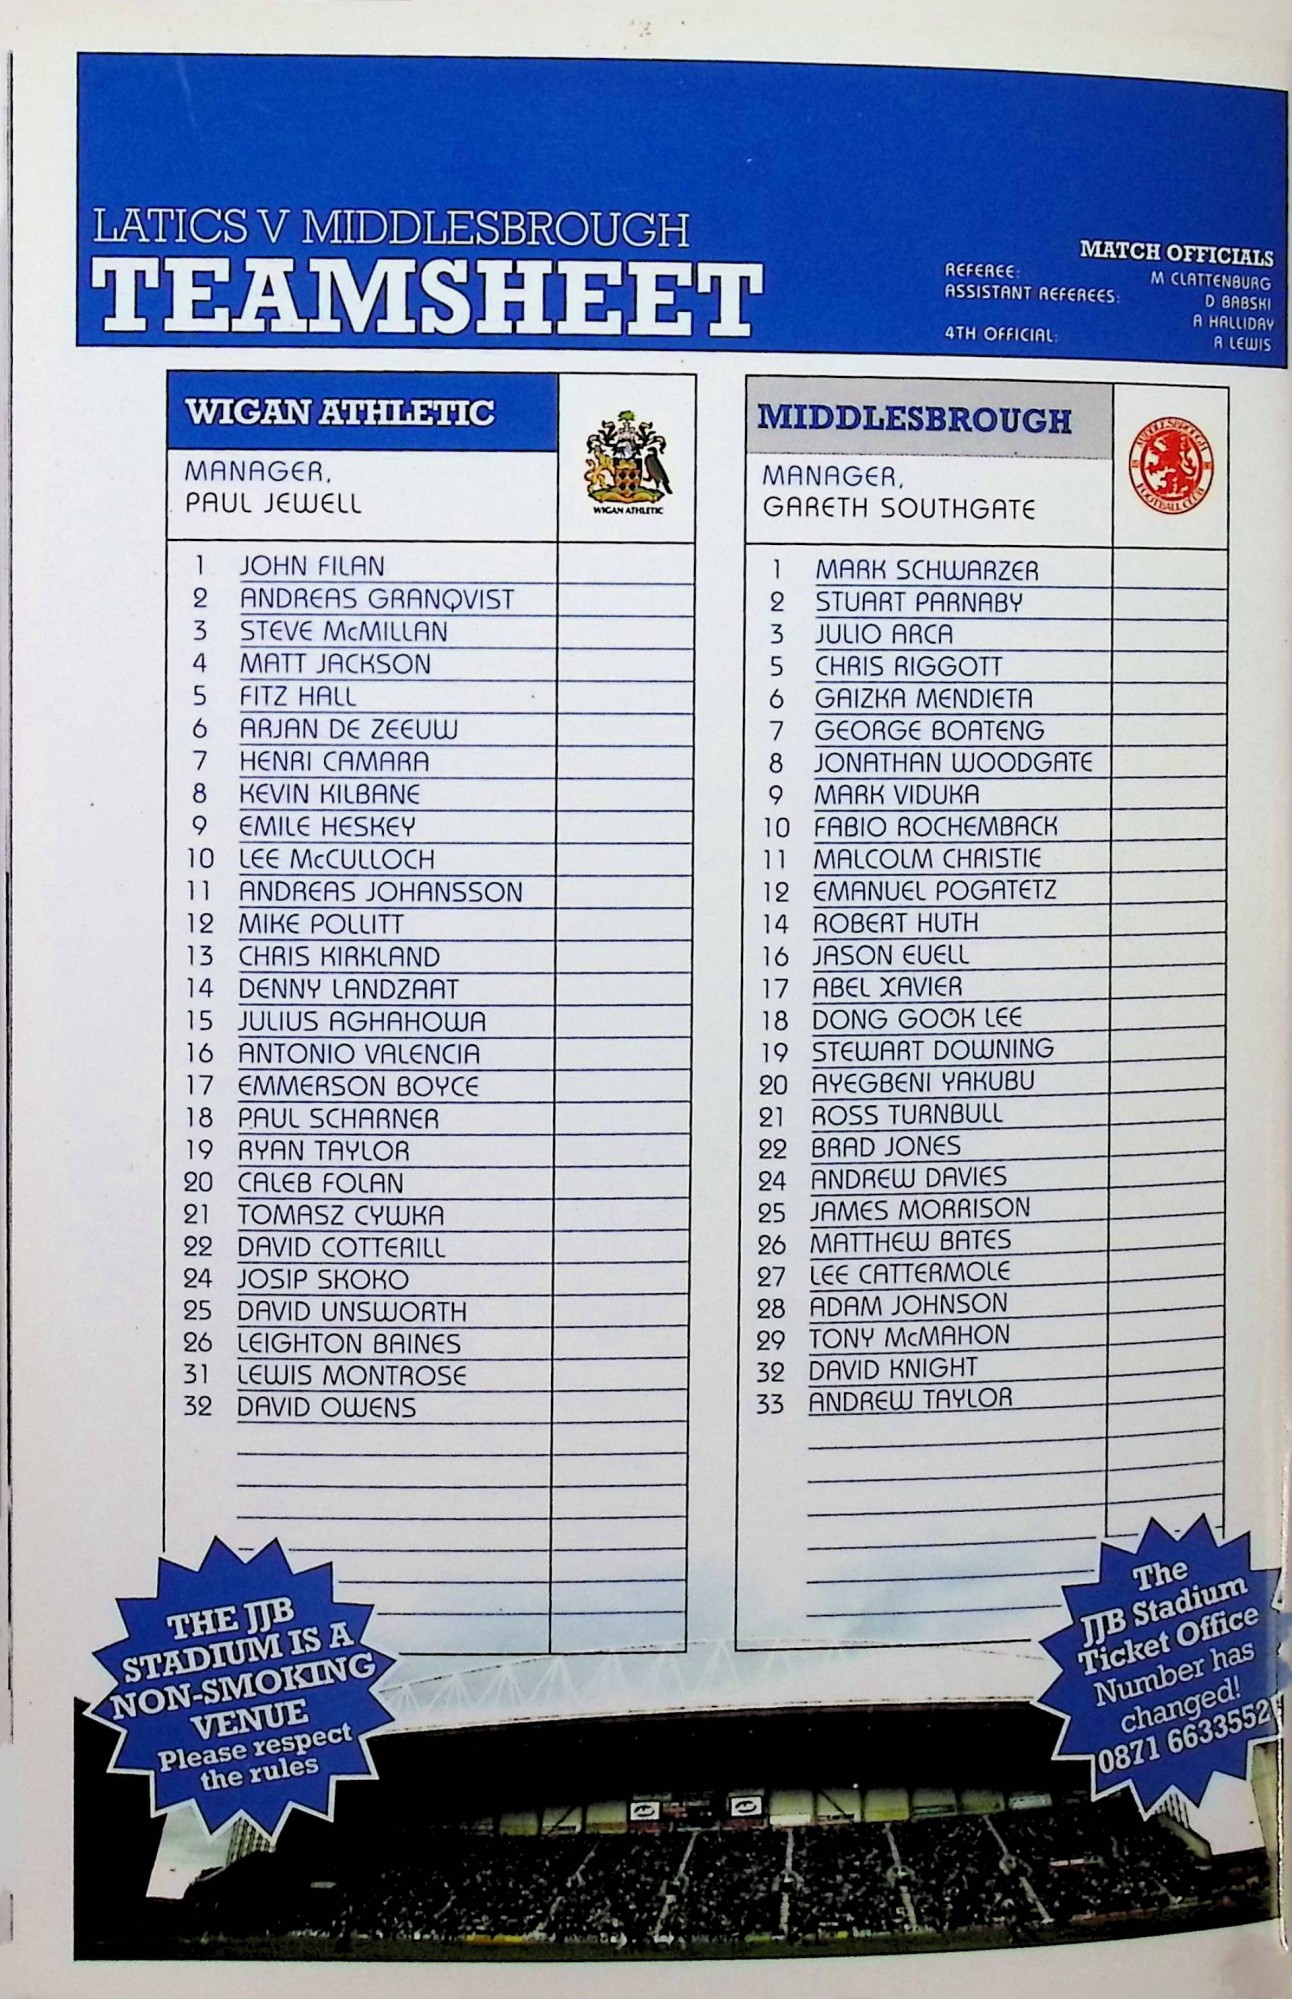 LATICS V MIDDLESBROUGH
TEAMSHEET
MATCH OFFICIALS
REFEREE: M CLATTENBURG
ASSISTANT REFEREES: D BABSKI
A HALLIDAY
4TH OFFICIAL: A LEWIS
WIGAN ATHLETIC
MANAGER,
PAUL JEWELL
WIGAN ATHLETIC
1 JOHN FILAN
2 ANDREAS GRANQVIST
3 STEVE McMILLAN
4 MATT JACKSON
5 FITZ HALL
6 ARJAN DE ZEEUW
7 HENRI CAMARA
8 KEVIN KILBANE
9 EMILE HESKEY
10 LEE McCULLOCH
11 ANDREAS JOHANSSON
12 MIKE POLLITT
13 CHRIS KIRKLAND
14 DENNY LANDZAAT
15 JULIUS AGHAHOWA
16 ANTONIO VALENCIA
17 EMMERSON BOYCE
18 PAUL SCHARNER
19 RYAN TAYLOR
20 CALEB FOLAN
21 TOMASZ CYWKA
22 DAVID COTTERILL
24 JOSIP SKOKO
25 DAVID UNSWORTH
26 LEIGHTON BAINES
31 LEWIS MONTROSE
32 DAVID OWENS
MIDDLESBROUGH
MANAGER,
GARETH SOUTHGATE
MIDDLESBROUGH
FOOTBALL CLUB
1 MARK SCHWARZER
2 STUART PARNABY
3 JULIO ARCA
5 CHRIS RIGGOTT
6 GAIZKA MENDIETA
7 GEORGE BOATENG
8 JONATHAN WOODGATE
9 MARK VIDUKA
10 FABIO ROCHEMBACK
11 MALCOLM CHRISTIE
12 EMANUEL POGATETZ
14 ROBERT HUTH
16 JASON EUELL
17 ABEL XAVIER
18 DONG GOOK LEE
19 STEWART DOWNING
20 AYEGBENI YAKUBU
21 ROSS TURNBULL
22 BRAD JONES
24 ANDREW DAVIES
25 JAMES MORRISON
26 MATTHEW BATES
27 LEE CATTERMOLE
28 ADAM JOHNSON
29 TONY McMAHON
32 DAVID KNIGHT
33 ANDREW TAYLOR
THE JJB
STADIUM IS A
NON-SMOKING
VENUE
Please respect
the rules
The
JJB Stadium
Ticket Office
Number has
changed!
0871 6633552